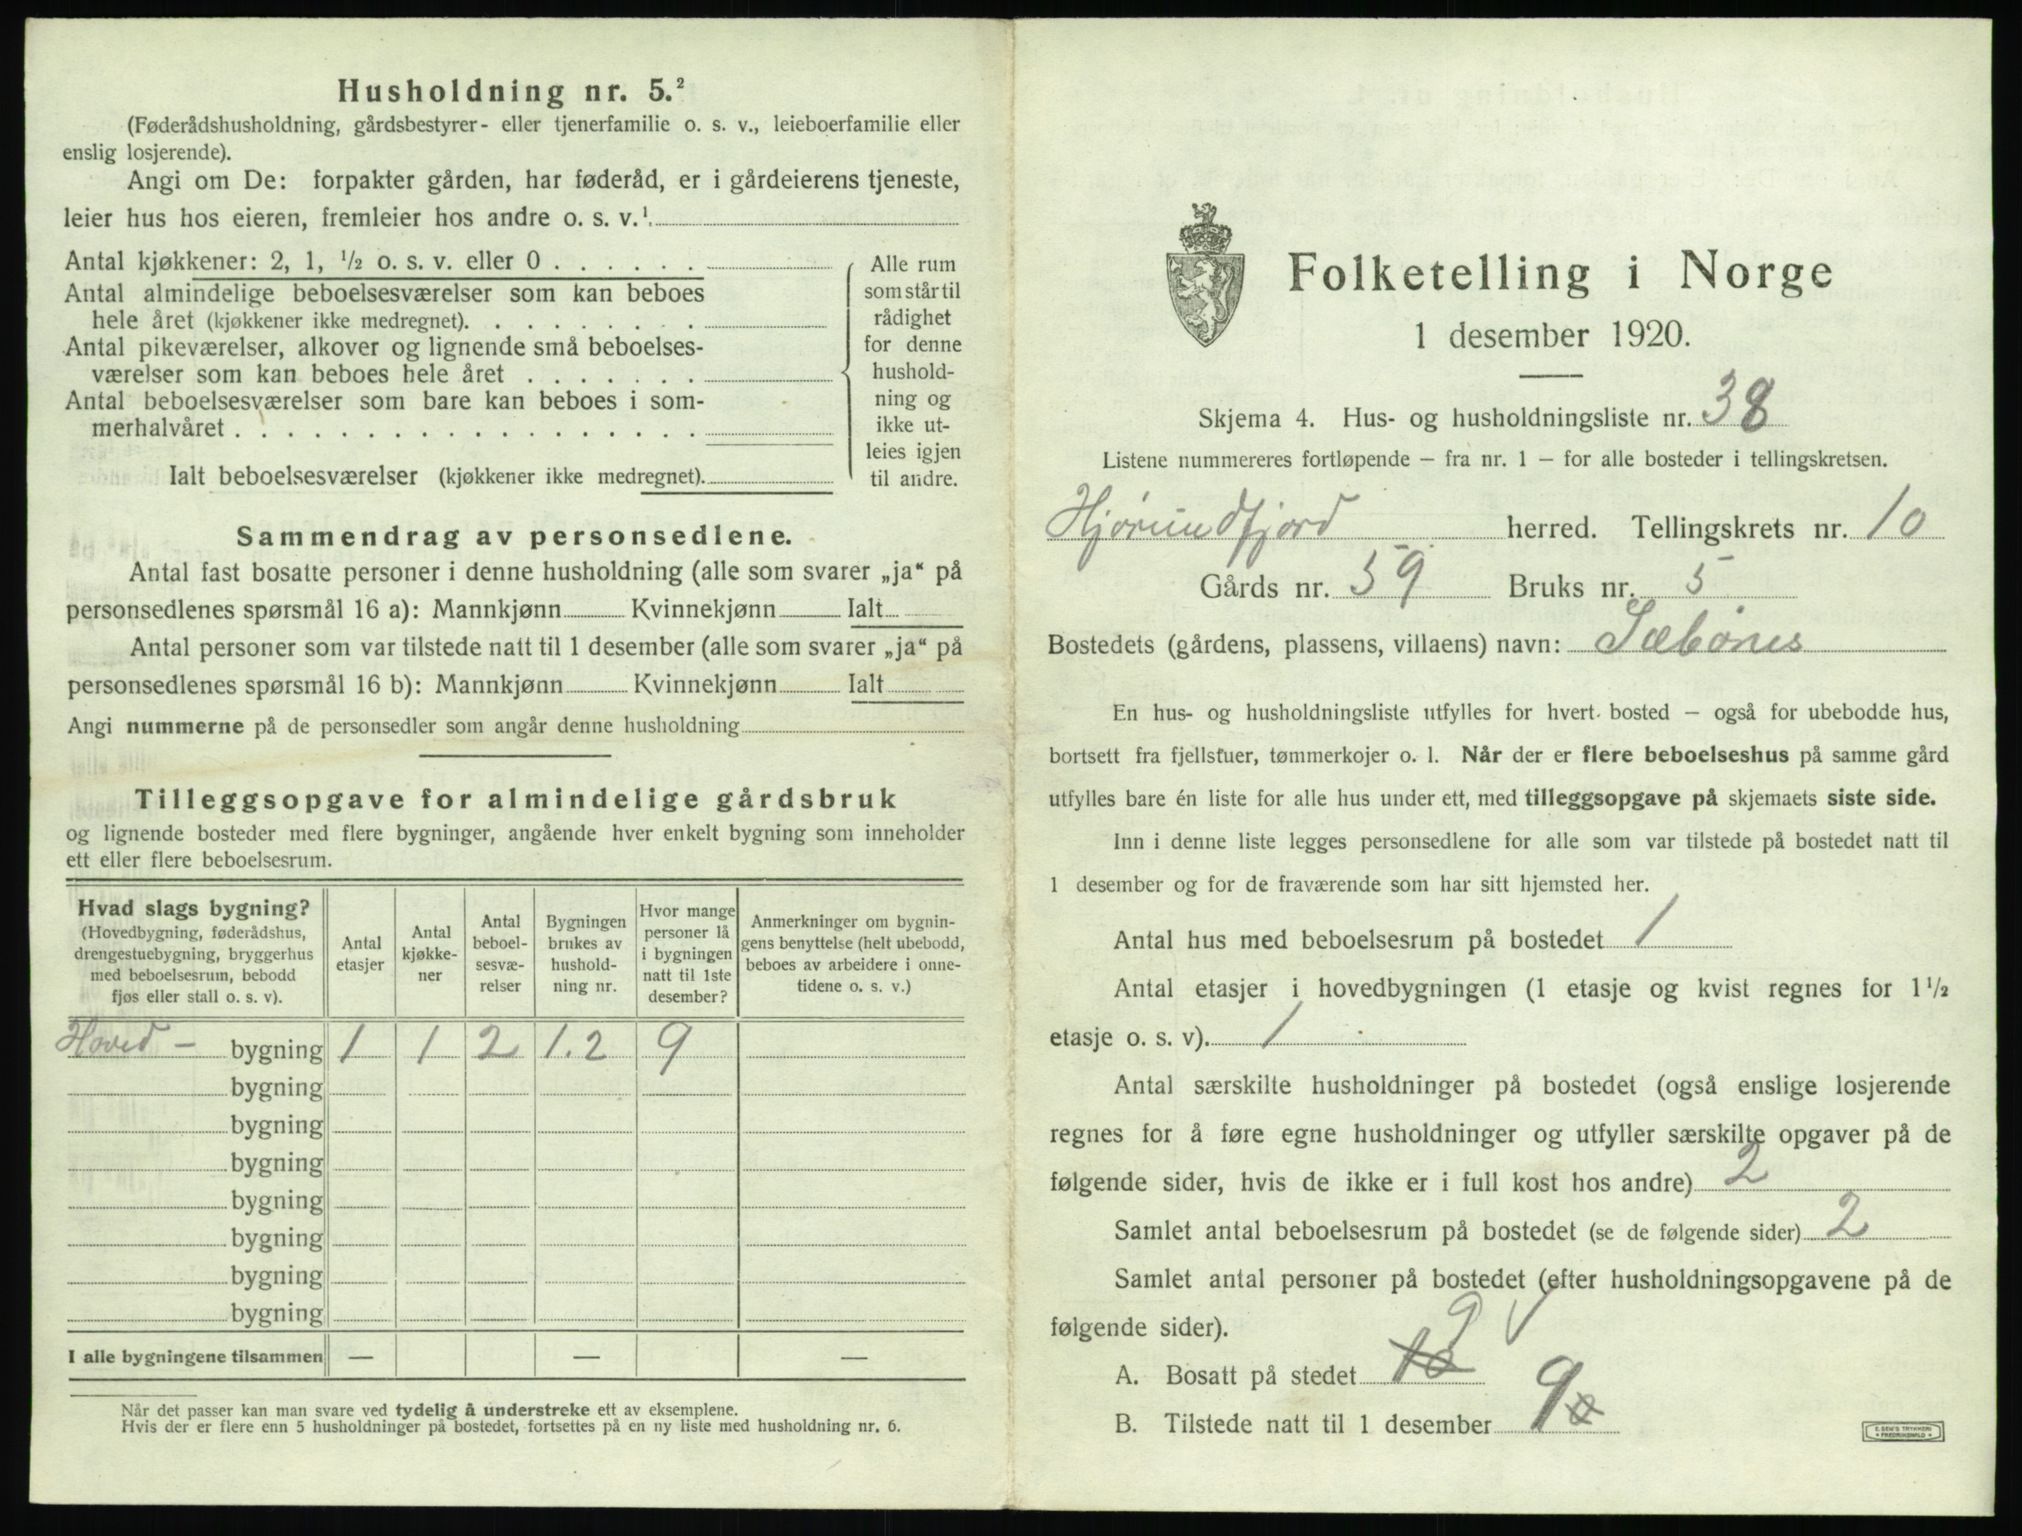 Husholdning nr. 5.²
(Føderådshusholdning, gårdsbestyrer- eller tjenerfamilie o. s. v., leieboerfamilie eller
enslig losjerende).
Angi om De: forpakter gården, har føderåd, er i gårdeierens tjeneste,
leier hus hos eieren, fremleier hos andre o. s. v.¹
Antal kjøkkener: 2, 1, ½ o. s. v. eller 0 . . . . . .
Antal almindelige beboelsesværelser som kan beboes
hele året (kjøkkener ikke medregnet). . . . . . . . .
Antal pikeværelser, alkover og lignende små beboelses-
værelser som kan beboes hele året . . . . . . .
Antal beboelsesværelser som bare kan beboes i som-
merhalvåret . . . . . . . . . . . . . . . . . .
Ialt beboelsesværelser (kjøkkener ikke medregnet).
Alle rum
som står til
rådighet
for denne
hushold-
ning og
ikke ut-
leies igjen
til andre.
Sammendrag av personsedlene.
Antal fast bosatte personer i denne husholdning (alle som svarer „ja“ på
personsedlenes spørsmål 16 a): Mannkjønn Kvinnekjønn Ialt
Antal personer som var tilstede natt til 1 desember (alle som svarer „ja“ på
personsedlenes spørsmål 16 b): Mannkjønn Kvinnekjønn Ialt
Angi nummerne på de personsedler som angår denne husholdning
Tilleggsopgave for almindelige gårdsbruk
og lignende bosteder med flere bygninger, angående hver enkelt bygning som inneholder
ett eller flere beboelsesrum.
Hvad slags bygning?
(Hovedbygning, føderådshus,
drengestuebygning, bryggerhus
med beboelsesrum, bebodd
fjøs eller stall o. s. v).
Antal
etasjer
Antal
kjøkke-
ner
Antal
beboel-
sesvæ-
relser
Bygningen
brukes av
hushold-
ning nr.
Hvor mange
personer lå
i bygningen
natt til 1ste
desember?
Anmerkninger om bygnin-
gens benyttelse (helt ubebodd,
beboes av arbeidere i onne-
tidene o. s. v.)
Hoved - bygning 1 1 2 1.2 9
bygning
bygning
bygning
bygning
bygning
bygning
bygning
I alle bygningene tilsammen — — —
Når det passer kan man svare ved tydelig å understreke ett av eksemplene.
Hvis der er flere enn 5 husholdninger på bostedet, fortsettes på en ny liste med husholdning nr. 6.
Folketelling i Norge
1 desember 1920.
Skjema 4. Hus- og husholdningsliste nr. 38
Listene nummereres fortløpende – fra nr. 1 – for alle bosteder i tellingskretsen.
Hjørundfjord herred. Tellingskrets nr. 10
Gårds nr. 59 Bruks nr. 5
Bostedets (gårdens, plassens, villaens) navn: Sæbønes
En hus- og husholdningsliste utfylles for hvert bosted – også for ubebodde hus,
bortsett fra fjellstuer, tømmerkojer o. l. Når der er flere beboelseshus på samme gård
utfylles bare én liste for alle hus under ett, med tilleggsopgave på skjemaets siste side.
Inn i denne liste legges personsedlene for alle som var tilstede på bostedet natt til
1 desember og for de fraværende som har sitt hjemsted her.
Antal hus med beboelsesrum på bostedet 1
Antal etasjer i hovedbygningen (1 etasje og kvist regnes for 1½
etasje o. s. v). 1
Antal særskilte husholdninger på bostedet (også enslige losjerende
regnes for å føre egne husholdninger og utfyller særskilte opgaver på de
følgende sider, hvis de ikke er i full kost hos andre) 2
Samlet antal beboelsesrum på bostedet (se de følgende sider) 2
Samlet antal personer på bostedet (efter husholdningsopgavene på de
følgende sider). 9 V
A. Bosatt på stedet 10
B. Tilstede natt til 1 desember 9
E. SEM'S TRYKKERI
FREDRIKSHALD